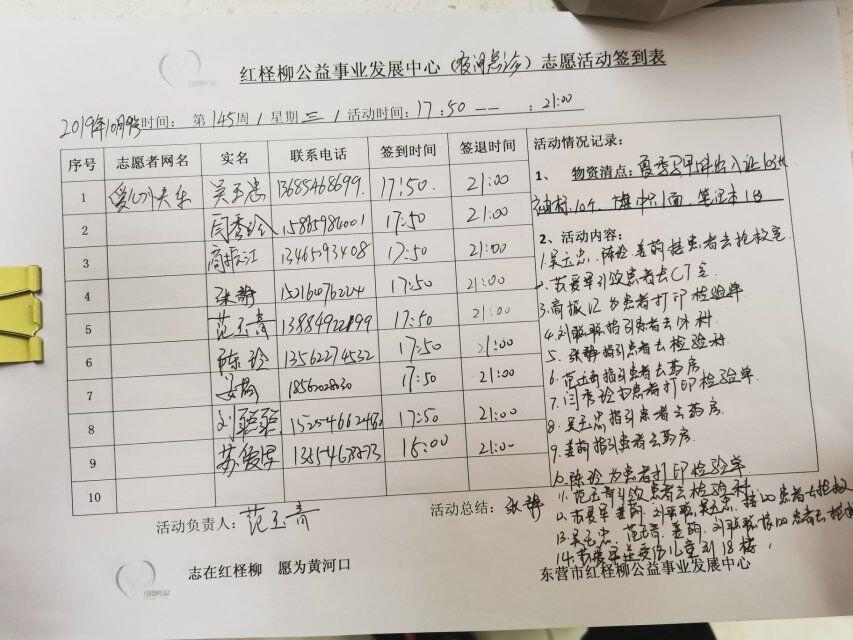 红柽柳公益事业发展中心(夜间急诊)志愿活动签到表
2019年10月9号 时间: 第145周/星期三/活动时间:17:50——:21:00
序号 志愿者网名 实名 联系电话 签到时间 签退时间
1 吴玉忠 13685468699 17:50 21:00
2 闫秀玲 17:50 21:00
3 商振江 13465293408 17:50 21:00
4 张静 15216076224 17:50 21:00
5 范玉青 17:50 21:00
6 陈玲 13562274532 17:50 21:00
7 姜萌 17:50 21:00
8 刘聪聪 17:50 21:00
9 苏爱军 21:00
10
活动负责人:范玉青 活动总结:张静
活动情况记录:
1、物资清点:
袖标10个、旗帜1面、笔记本1台
2、活动内容:
1.吴玉忠.陈玲.姜萌接患者去抢救室
2.苏爱军引领患者去CT室
3.商振江为患者打印检验单
4.刘聪聪指引患者去外科
5.张静指引患者去检验科
6.范玉青指引患者去药房
7.闫秀玲为患者打印检验单
8.吴玉忠指引患者去药房
9.姜萌指引患者去药房
10.陈玲为患者打印检验单
11.范玉青引领患者去检验科
12.苏爱军.姜萌.刘聪聪.吴玉忠.接120患者去抢救
13.吴玉忠.范玉青.姜萌.刘聪聪接120患者去抢救
14.苏爱军送受伤儿童到18楼
志在红柽柳 愿为黄河口
东营市红柽柳公益事业发展中心